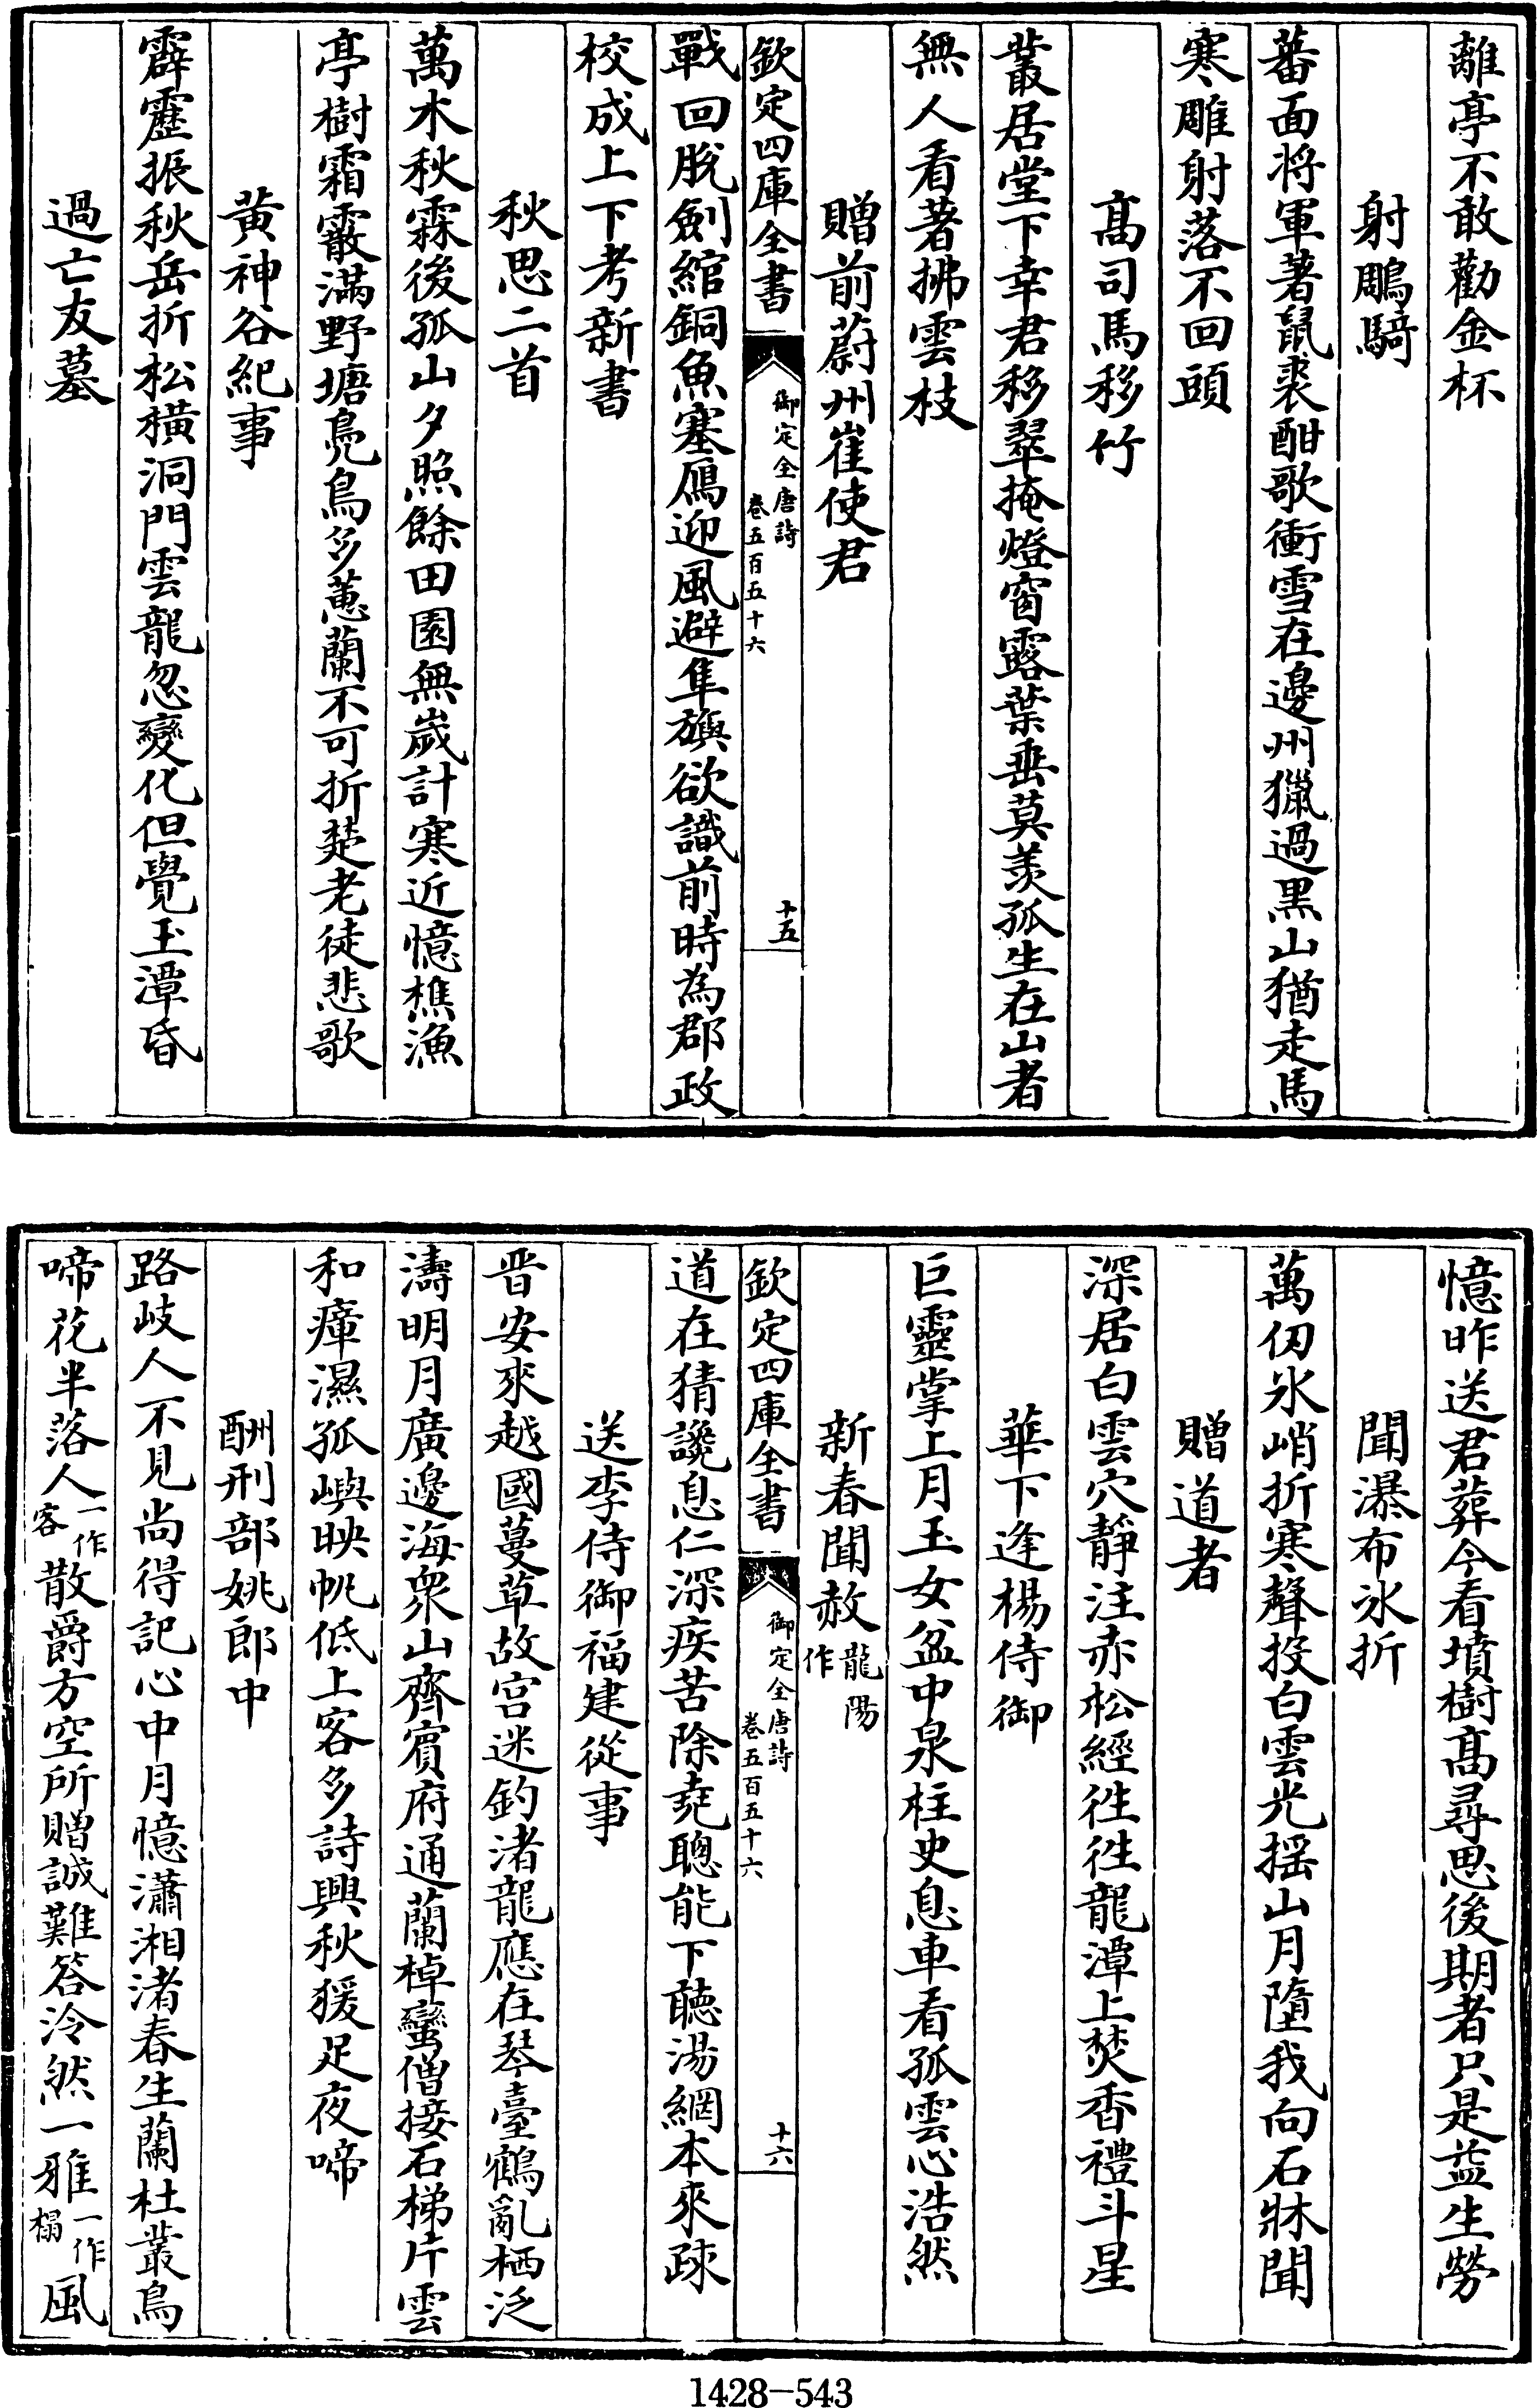 離亭不敢勸金杯
射鵰騎
蕃面将軍著鼠裘酣歌衝雪在邊州獵過黒山猶走馬
寒雕射落不回頭
髙司馬移竹
叢居堂下幸君移翠掩燈窗露葉垂莫羡孤生在山者
無人看著拂雲枝
贈前蔚州崔使君
欽定四庫全書
御定全唐詩
卷五百五十六
十五
戰回脫劍綰銅魚塞鴈迎風避隼旟欲識前時為郡政
校成上下考新書
秋思二首
萬木秋霖後孤山夕照餘田園無歲計寒近憶樵漁
亭樹霜霰滿野塘鳧鳥多蕙蘭不可折楚老徒悲歌
黄神谷紀事
霹靂振秋岳折松橫洞門雲龍忽變化但覺玉潭昏
過亡友墓
憶昨送君葬今看墳樹髙尋思後期者只是益生勞
聞瀑布氷折
萬仭氷峭折寒聲投白雲光揺山月墮我向石牀聞
贈道者
深居白雲穴靜注赤松經徃徃龍潭上焚香禮斗星
華下逢楊侍御
巨靈掌上月玉女盆中泉柱史息車看孤雲心浩然
新春聞赦龍陽作
欽定四庫全書
御定全唐詩
卷五百五十六
十六
道在猜讒息仁深疾苦除堯聰能下聽湯網本來疎
送李侍御福建從事
晋安來越國蔓草故宫迷釣渚龍應在琴臺鶴亂栖泛
濤明月廣邊海衆山齊賔府通蘭棹蠻僧接石梯片雲
和瘴濕孤嶼映帆低上客多詩興秋猨足夜啼
酬刑部姚郎中
路岐人不見尚得記心中月憶瀟湘渚春生蘭杜叢鳥
啼花半落人一作客散爵方空所贈誠難答泠然一雅一作榻風
1428-543